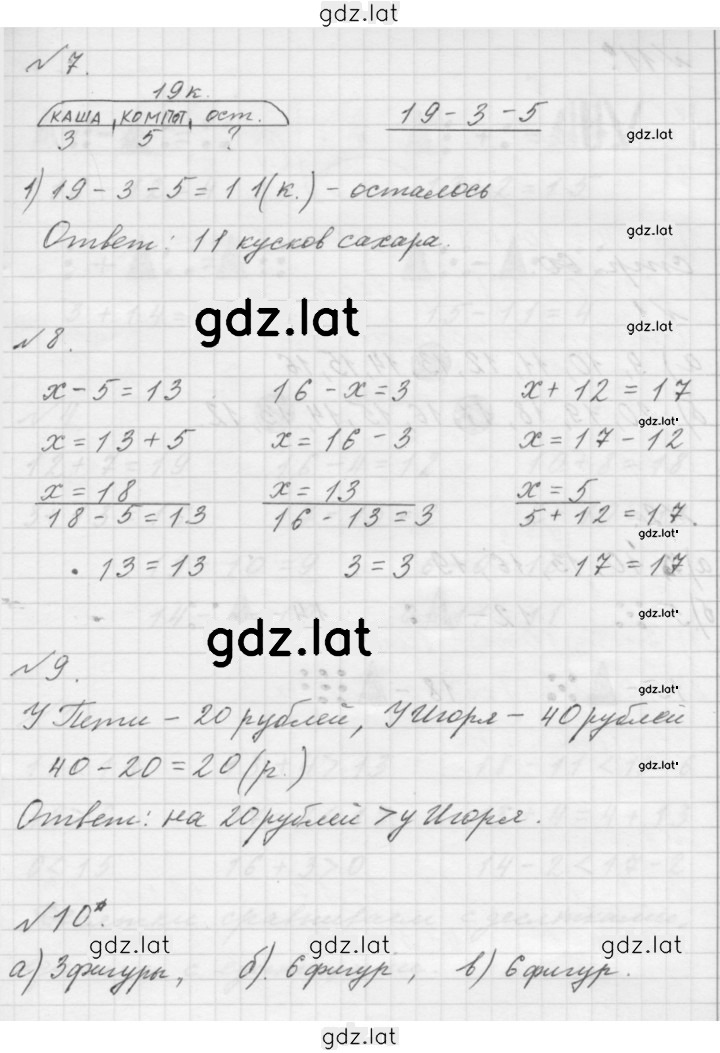 gdz.lat
№ 7.
19к.
КАША КОМПОТ ост.
3 5 ?
19 - 3 - 5
gdz.lat
1) 19 - 3 - 5 = 11(к.) - осталось
gdz.lat
Ответ: 11 кусков сахара.
gdz.lat
gdz.lat
№ 8.
x - 5 = 13 16 - x = 3 x + 12 = 17
gdz.lat
x = 13 + 5 x = 16 - 3 x = 17 - 12
gdz.lat
x = 18 x = 13 x = 5
18 - 5 = 13 16 - 13 = 3 5 + 12 = 17.
gdz.lat
13 = 13 3 = 3 17 = 17
gdz.lat
gdz.lat
№ 9.
gdz.lat
У Пети - 20 рублей, У Игоря - 40 рублей
40 - 20 = 20 (р.)
gdz.lat
Ответ: на 20 рублей > у Игоря.
№ 10*.
gdz.lat gdz.lat gdz.lat
а) 3 фигуры, б). 6 фигур, в) 6 фигур.
gdz.lat